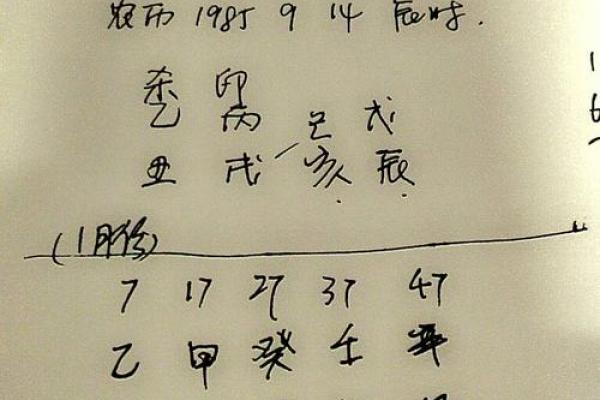 农历 1985 9 14 辰时.
杀 印
乙 丙 己 戊
丑 戌 亥 辰
(1月份)
7 17 27 37 47
乙 甲 癸 壬 辛